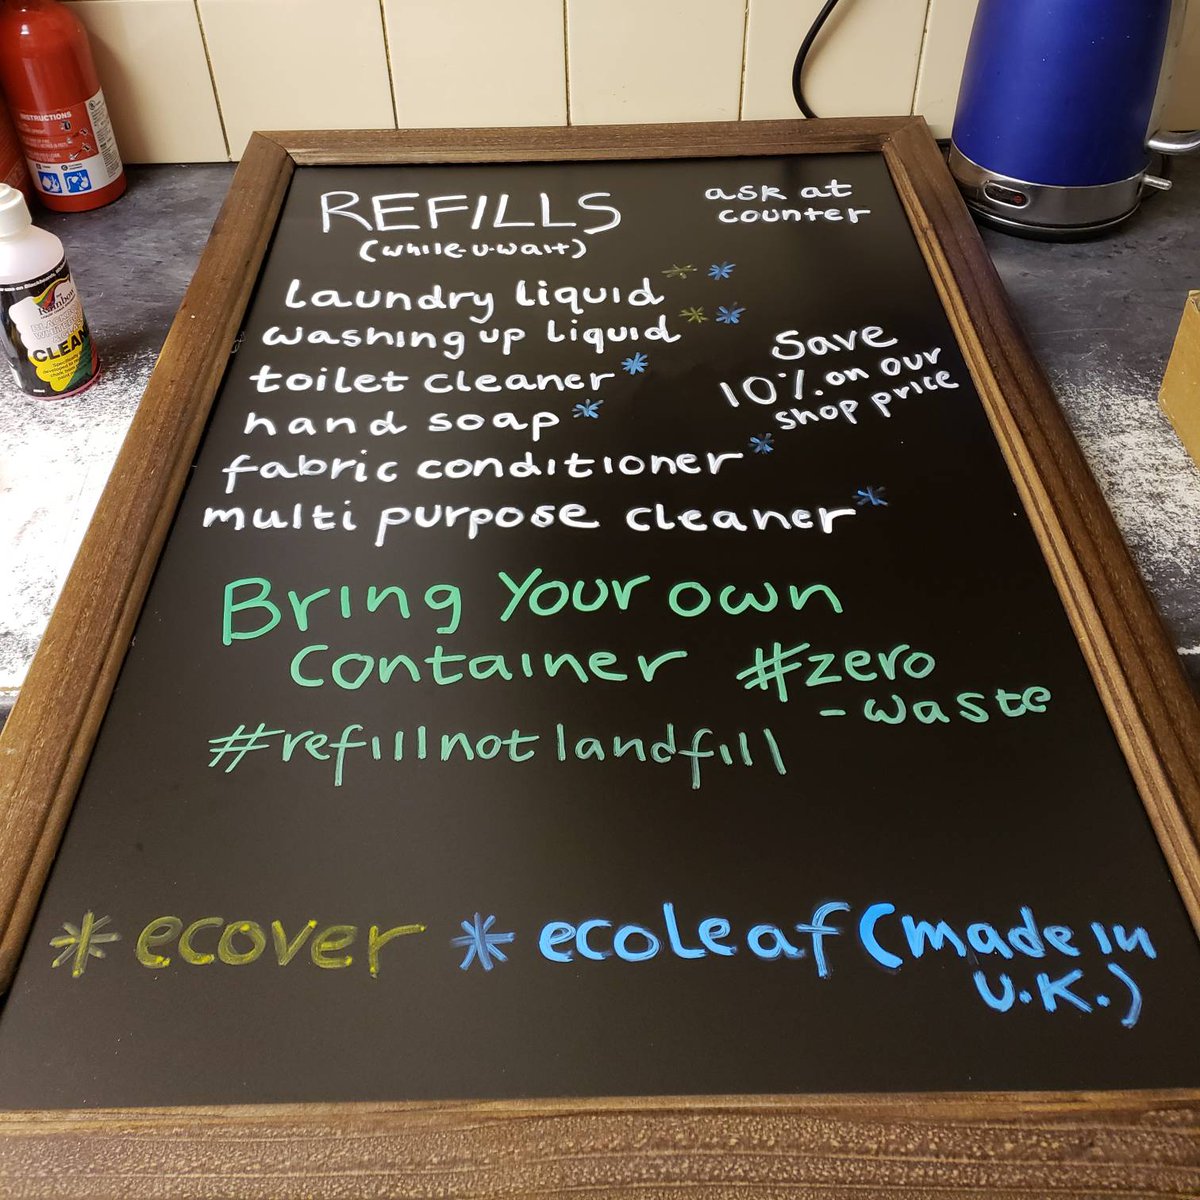 REFILLS
(while-u-wait)
ask at
counter
laundry liquid **
washing up liquid **
toilet cleaner *
hand soap *
fabric conditioner *
multi purpose cleaner *
Save
10% on our
shop price
Bring Your own
container #zero
-waste
#refillnotlandfill
*ecover *ecoleaf (made in
U.K.)
INSTRUCTIONS
Rainbow
CLEAN